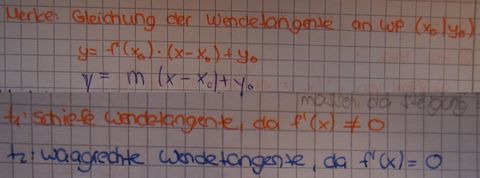 Merke: Gleichung der Wendetangente an WP (x₀|y₀)
y = f'(x₀) · (x-x₀) + y₀
y = m (x-x₀) + y₀
da Steigung
t₁: schiefe Wendetangente, da f'(x) ≠ 0
t₂: waagrechte Wendetangente, da f'(x) = 0